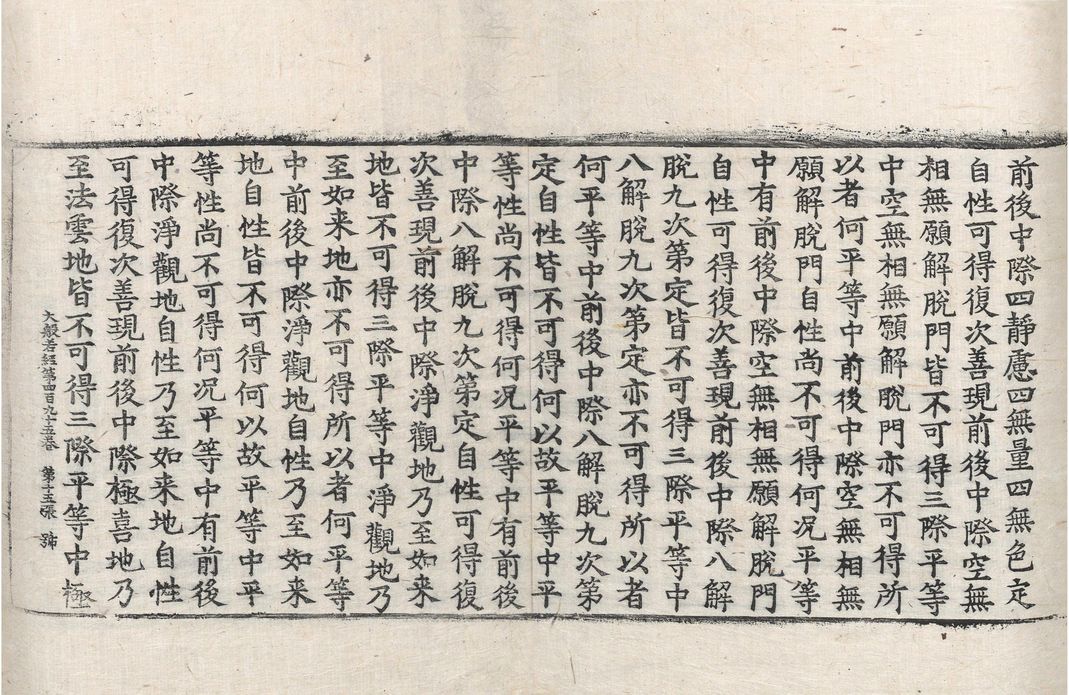 前後中際四靜慮四無量四無色定
自性可得復次善現前後中際空無
相無願解脫門皆不可得三際平等
中空無相無願解脫門亦不可得所
以者何平等中前後中際空無相無
願解脫門自性尚不可得何况平等
中有前後中際空無相無願解脫門
自性可得復次善現前後中際八解
脫九次第定皆不可得三際平等中
八解脫九次第定亦不可得所以者
何平等中前後中際八解脫九次第
定自性皆不可得何以故平等中平
等性尚不可得何况平等中有前後
中際八解脫九次第定自性可得復
次善現前後中際淨觀地乃至如来
地皆不可得三際平等中淨觀地乃
至如来地亦不可得所以者何平等
中前後中際淨觀地自性乃至如来
地自性皆不可得何以故平等中平
等性尚不可得何况平等中有前後
中際淨觀地自性乃至如来地自性
可得復次善現前後中際極喜地乃
至法雲地皆不可得三際平等中極
大般若經第四百九十五卷 第十五張 號